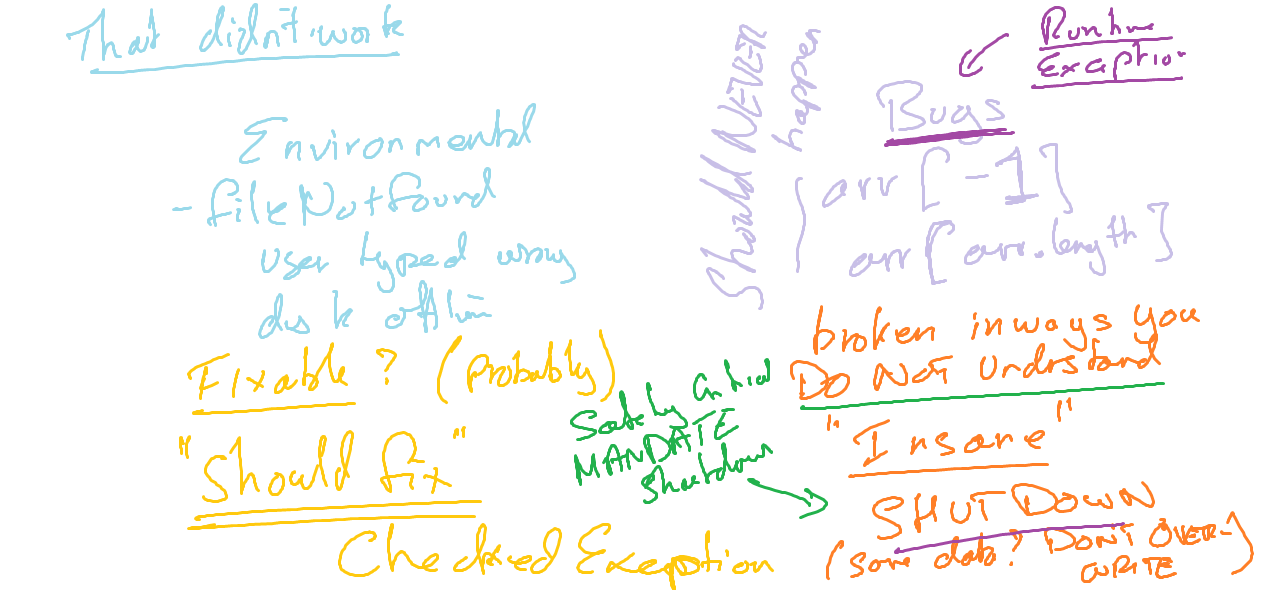 That didn't work
Environmental
- fileNotfound
user typed wrong
disk offline
Fixable? (Probably)
"Should fix"
Checked Exeption
Should NEVER
happen
Runtime
Exception
Bugs
arr[-1]
arr[arr.length]
broken in ways you
DO NOT Undrstand
"Insane"
Safety Critical
MANDATE
Shutdown
SHUT DOWN
(save data? DON'T OVER-
WRITE)